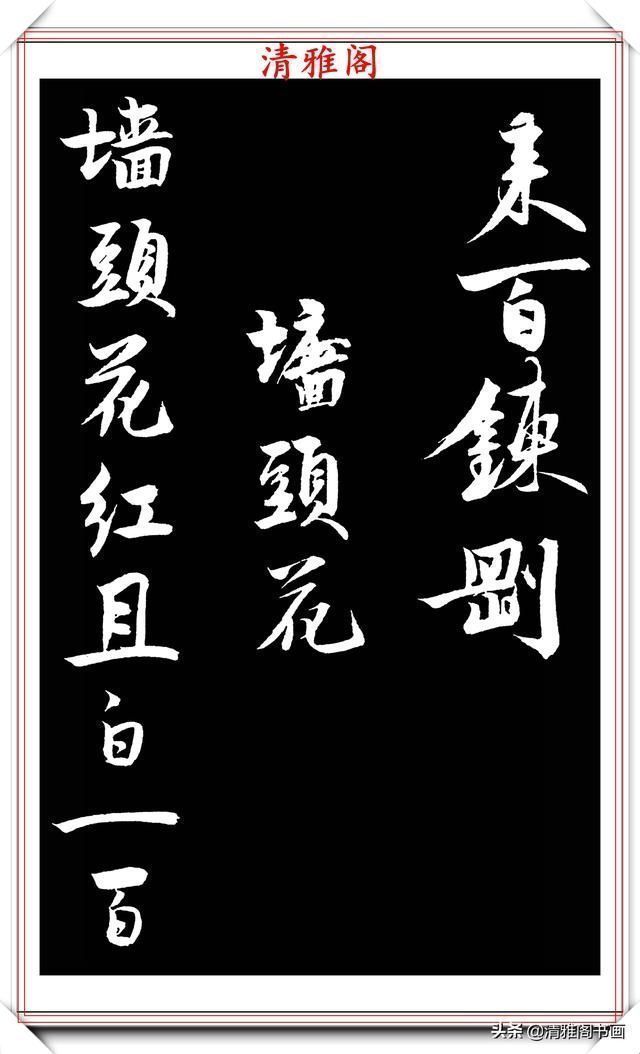 清雅阁
来百鍊剛
墻頭花
墙頭花红且白一百
头条@清雅阁书画